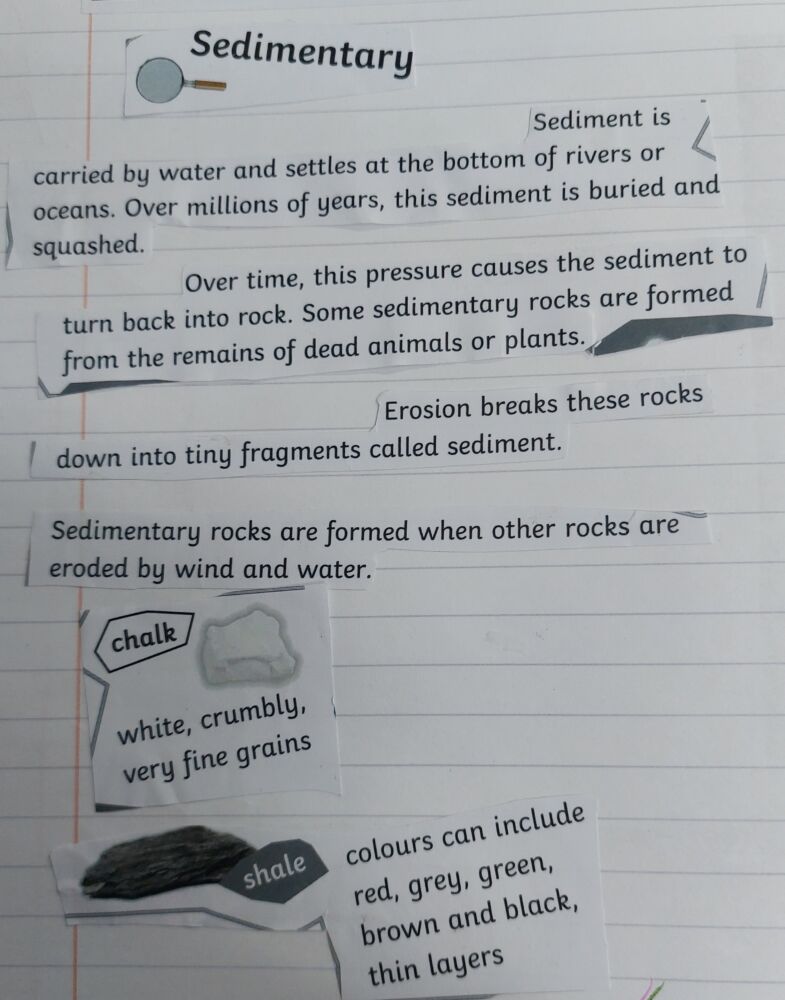 Sedimentary
Sediment is
carried by water and settles at the bottom of rivers or
oceans. Over millions of years, this sediment is buried and
squashed.
Over time, this pressure causes the sediment to
turn back into rock. Some sedimentary rocks are formed
from the remains of dead animals or plants.
Erosion breaks these rocks
down into tiny fragments called sediment.
Sedimentary rocks are formed when other rocks are
eroded by wind and water.
chalk
white, crumbly,
very fine grains
shale
colours can include
red, grey, green,
brown and black,
thin layers